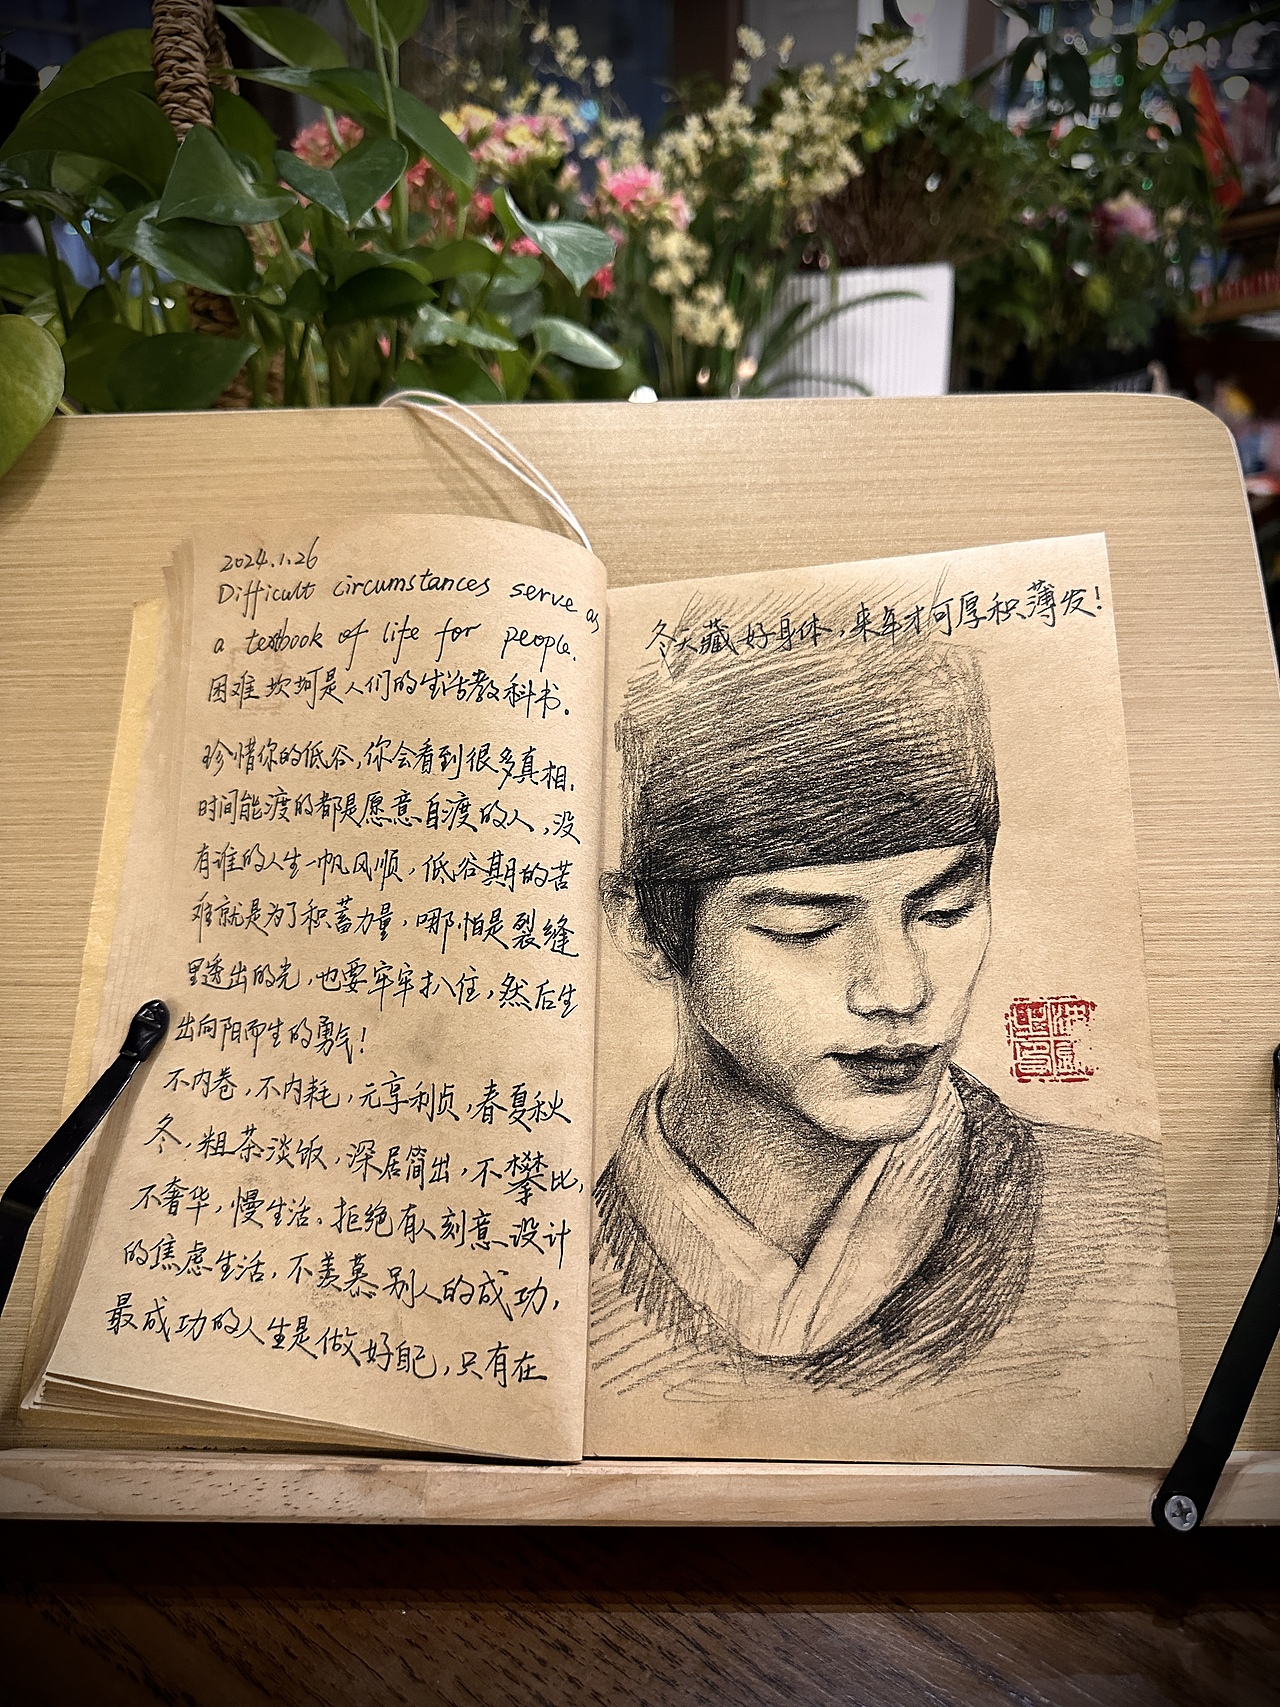 2024.1.26
Difficult circumstances serve as
a textbook of life for people.
困难坎坷是人们的生活教科书。
珍惜你的低谷，你会看到很多真相。
时间能渡的都是愿意自渡的人，没
有谁的人生一帆风顺，低谷期的苦
难就是为了积蓄力量，哪怕是裂缝
里透出的光，也要牢牢扒住，然后生
出向阳而生的勇气！
不内卷，不内耗，元享利贞，春夏秋
冬，粗茶淡饭，深居简出，不攀比，
不奢华，慢生活。拒绝有人刻意设计
的焦虑生活，不羡慕别人的成功，
最成功的人生是做好自己，只有在
冬天藏好身体，来年才可厚积薄发！